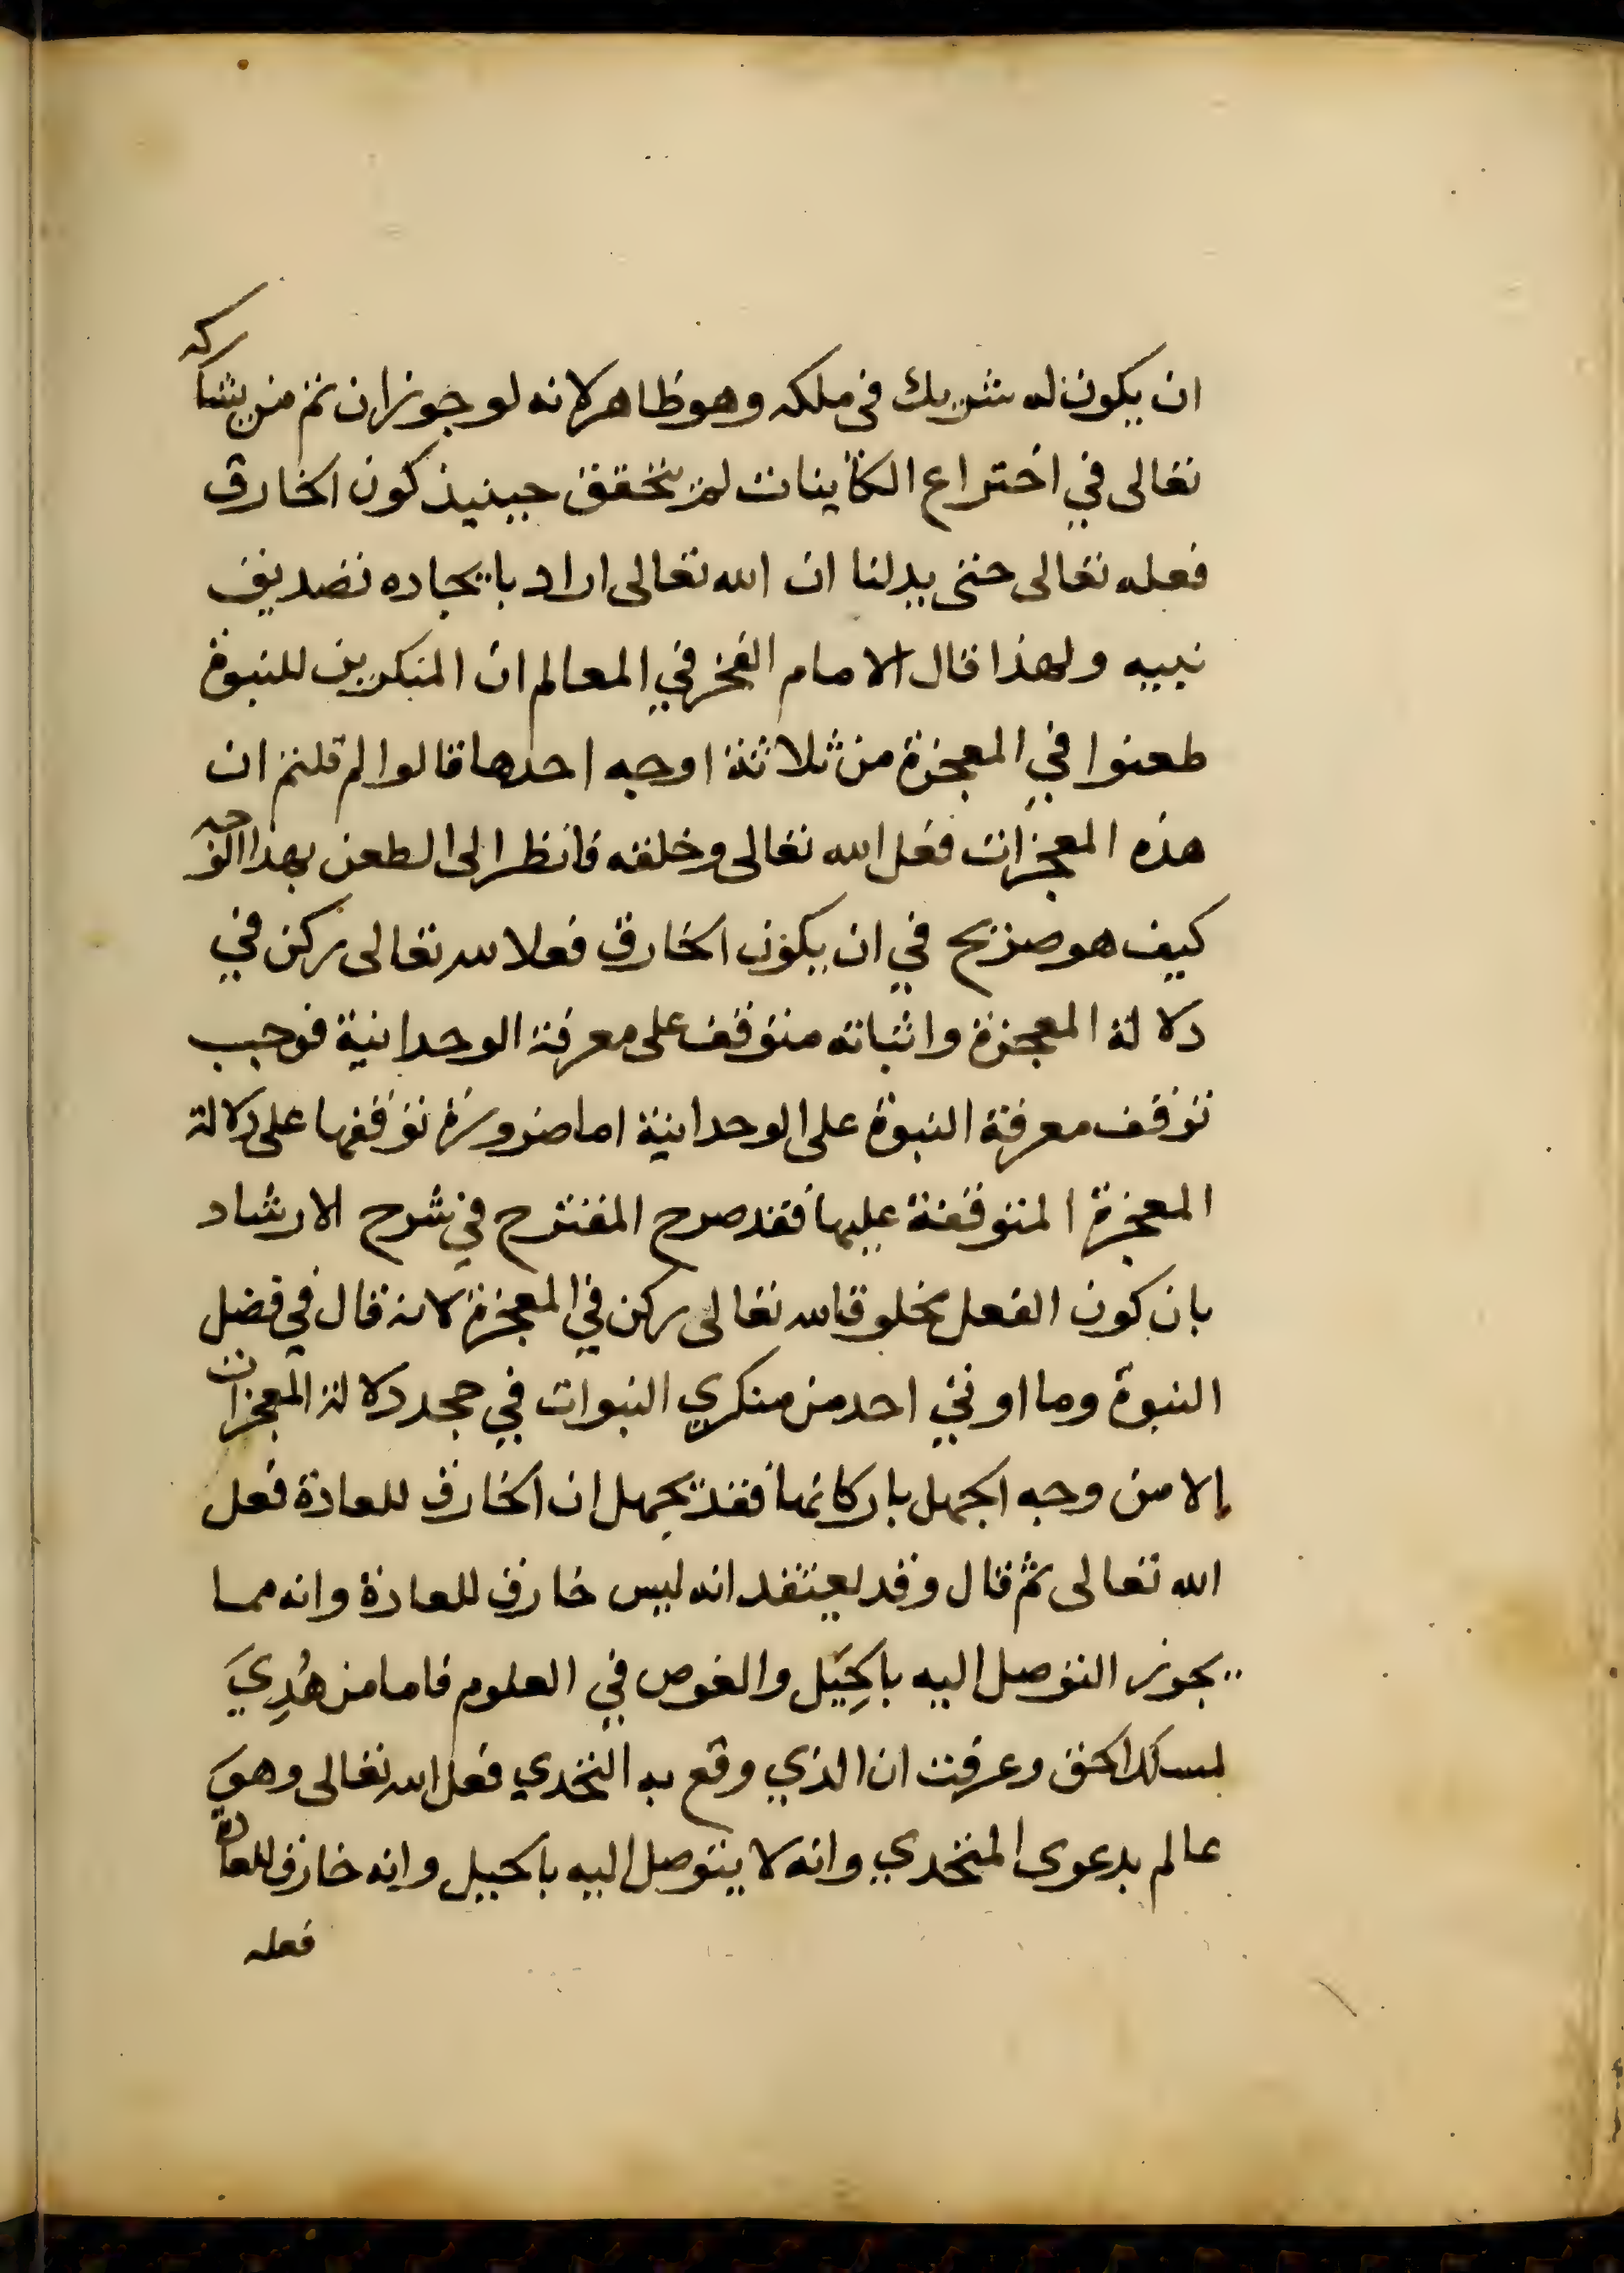 ان يكون له شريك فى ملكه وهو ظاهر لانه لو جوز ان ثم من يشاركه
تعالى في اختراع الكاينات لم يتحقق حينيذ كون الخارق
فعله تعالى حتى يدلنا ان الله تعالى اراد بايجاده تصديق
نبيه ولهذا قال الامام الفخر في المعالم ان المنكرين للنبوة
طعنوا في المعجزة من ثلاثة اوجه احدها قالوا لم قلتم ان
هذه المعجزات فعل الله تعالى وخلقه فانظر الى الطعن بهذا الوجه
كيف هو صريح في ان يكون الخارق فعلا لله تعالى ركن في
دلالة المعجزة واثباته متوقف على معرفة الوحدانية فوجب
توقف معرفة النبوة على الوحدانية اما ضرورة توقفها على دلالة
المعجزة المتوقفة عليها فقد صرح المقترح في شرح الارشاد
بان كون الفعل مخلوقا لله تعالى ركن في المعجزة لانه قال في فصل
النبوة وما اوتي احد من منكري النبوات في جحد دلالة المعجزات
إلا من وجه الجهل باركانها فقد يجهل ان الخارق للعادة فعل
الله تعالى ثم قال وقد يعتقد انه ليس خارق للعادة وانه مما
يجوز التوصل اليه بالحِيَل والغوص في العلوم فاما من هُدِيَ
لمسلك الحق وعرفت ان الذي وقع به التحدي فعل الله تعالى وهوَ
عالم بدعوى المتحدي وانه لا يتوصل اليه بالحيل وانه خارق للعادة
فعله